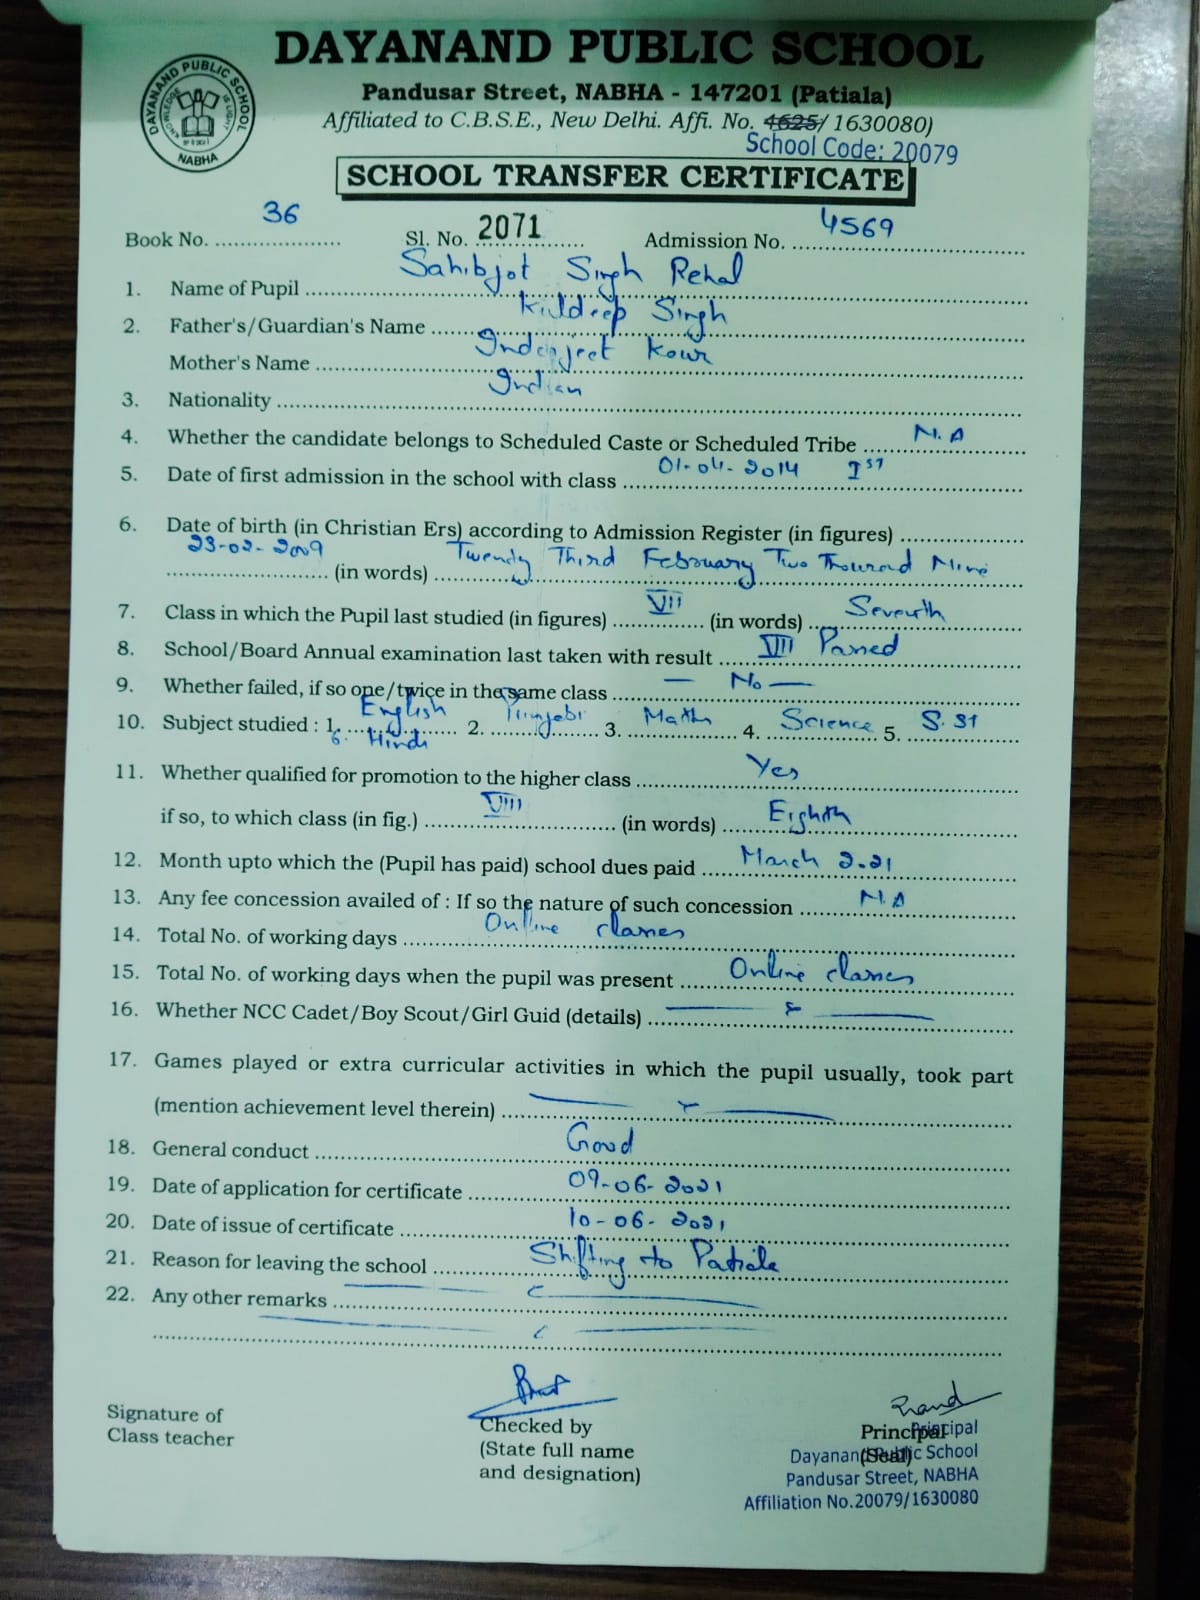 DAYANAND PUBLIC SCHOOL
Pandusar Street, NABHA - 147201 (Patiala)
Affiliated to C.B.S.E., New Delhi. Affi. No. 4625/ 1630080)
School Code: 20079
DAYANAND PUBLIC SCHOOL
KNOWLEDGE IS LIGHT
NABHA
SCHOOL TRANSFER CERTIFICATE
Book No. 36 Sl. No. 2071 Admission No. 4569
1. Name of Pupil Sahibjot Singh Rehal
2. Father's/Guardian's Name Kuldeep Singh
Mother's Name Inderjeet Kour
3. Nationality Indian
4. Whether the candidate belongs to Scheduled Caste or Scheduled Tribe N.A
5. Date of first admission in the school with class 01-04-2014 Ist
6. Date of birth (in Christian Ers) according to Admission Register (in figures)
23-02-2009 (in words) Twenty Third February Two Thousand Nine
7. Class in which the Pupil last studied (in figures) VII (in words) Seventh
8. School/Board Annual examination last taken with result VII Passed
9. Whether failed, if so one/twice in the same class — No —
10. Subject studied : 1. English 2. Punjabi 3. Math 4. Science 5. S. St
6. Hindi
11. Whether qualified for promotion to the higher class Yes
if so, to which class (in fig.) VIII (in words) Eighth
12. Month upto which the (Pupil has paid) school dues paid March 2021
13. Any fee concession availed of : If so the nature of such concession N.A
14. Total No. of working days Online classes
15. Total No. of working days when the pupil was present Online classes
16. Whether NCC Cadet/Boy Scout/Girl Guid (details)
17. Games played or extra curricular activities in which the pupil usually, took part
(mention achievement level therein)
18. General conduct Good
19. Date of application for certificate 09-06-2021
20. Date of issue of certificate 10-06-2021
21. Reason for leaving the school Shifting to Patiala
22. Any other remarks
Signature of
Class teacher
Checked by
(State full name
and designation)
Principal
(Seal)
Principal
Dayanand Public School
Pandusar Street, NABHA
Affiliation No.20079/1630080